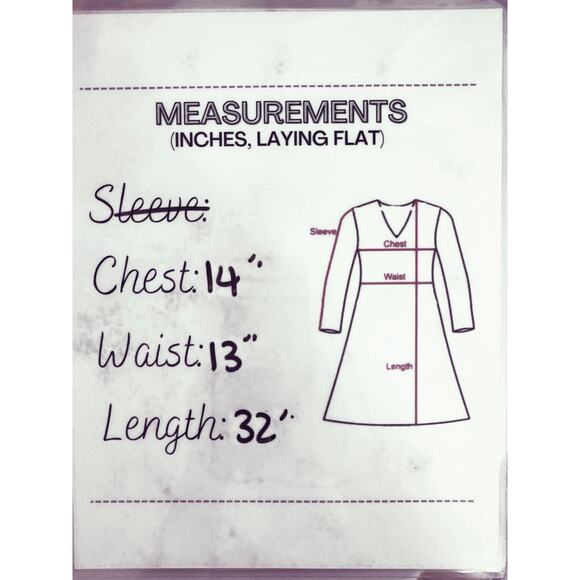 MEASUREMENTS
(INCHES, LAYING FLAT)
Sleeve:
Chest: 14"
Waist: 13"
Length: 32"
Sleeve
Chest
Waist
Length